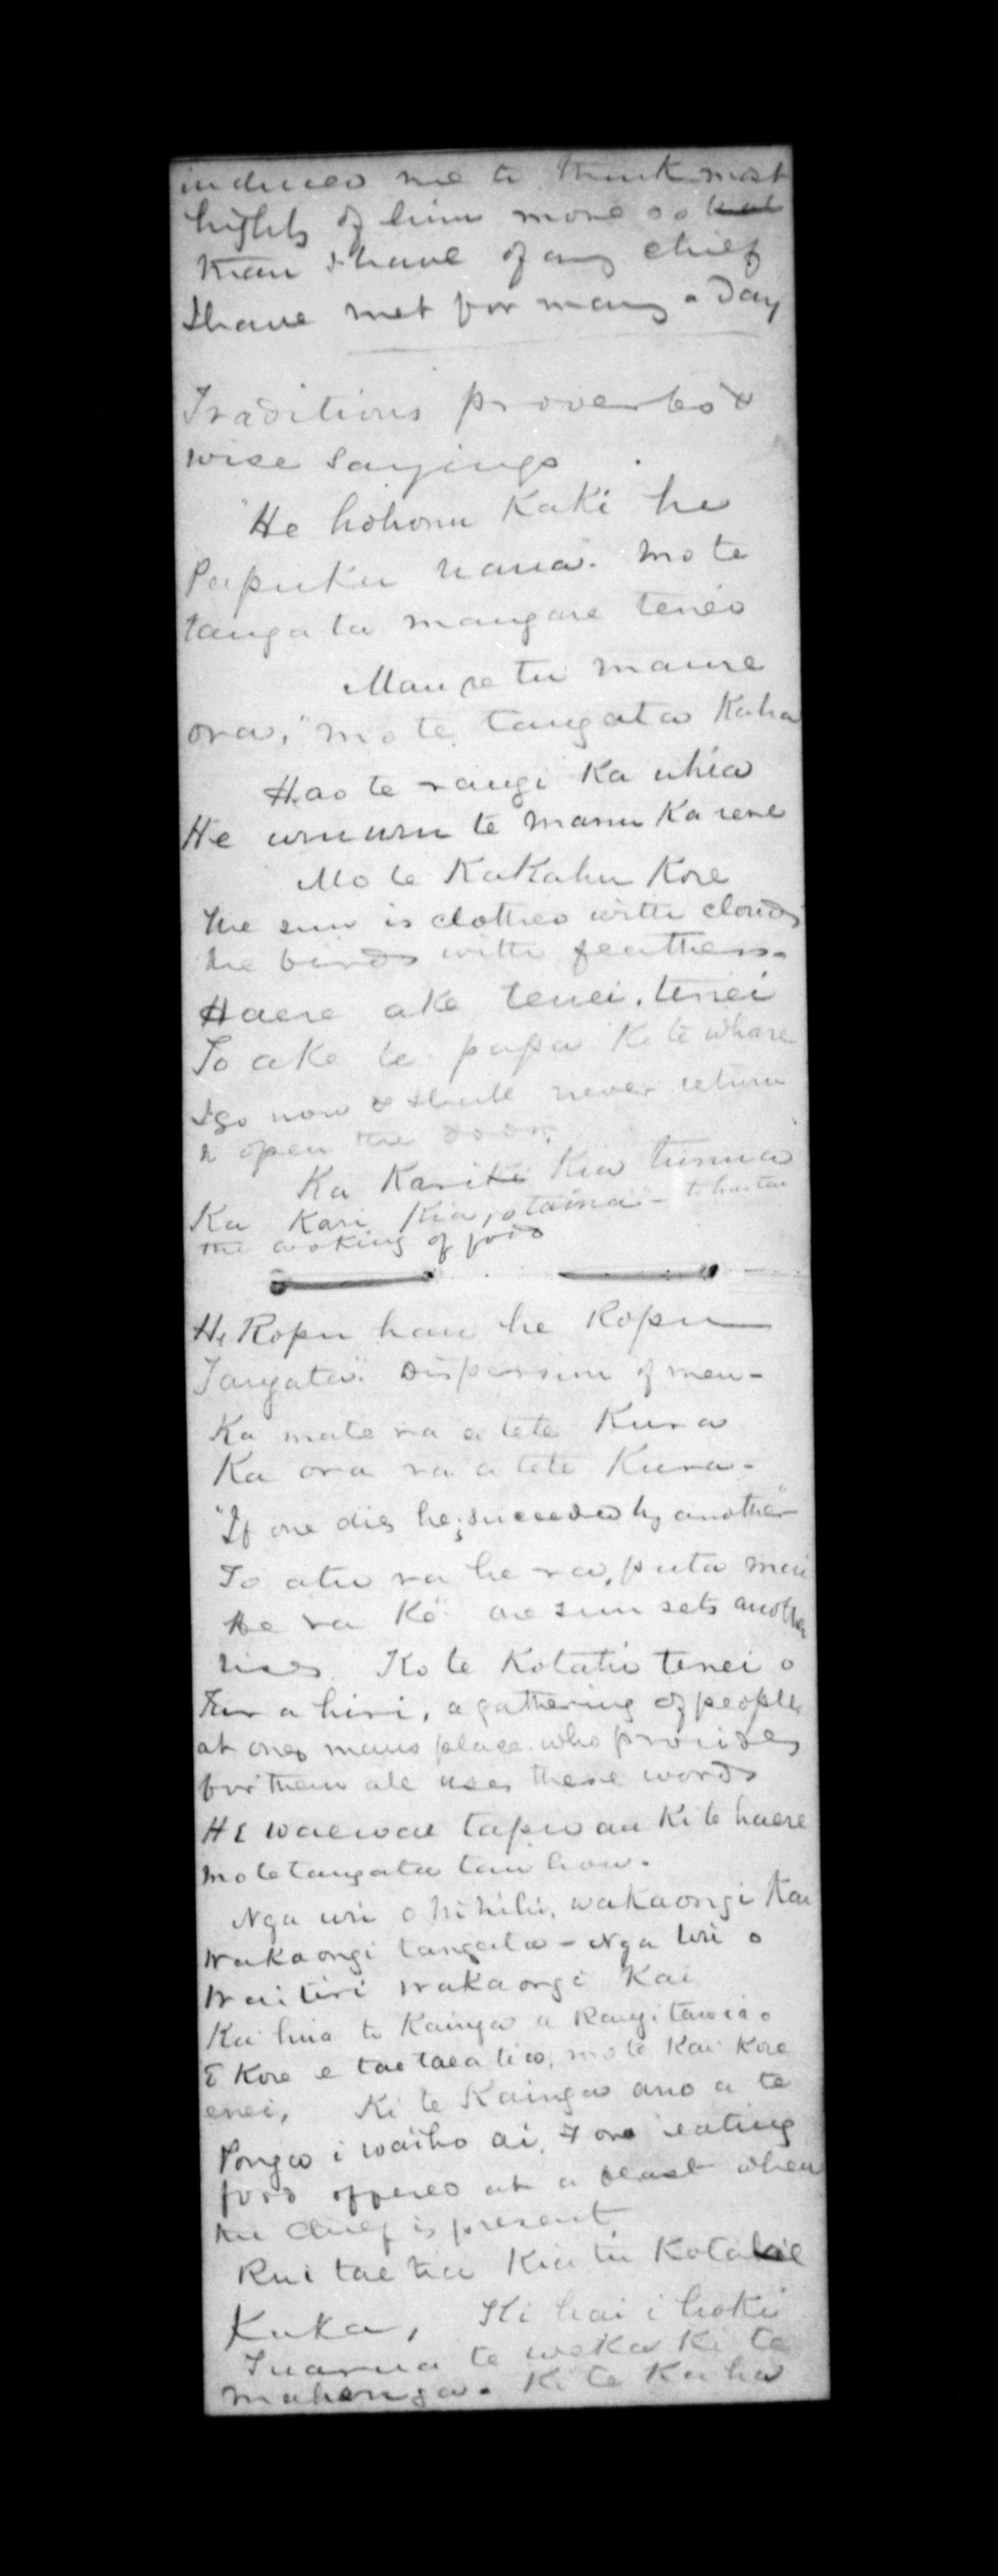 induced me to think most
highly of him more so that
than I have of any chief
I have met for many a day
Traditions proverbs &
wise sayings
"He hohonu Kaki he
Papuku uaua". mo te
tangata mangare tenei
Maure tu maure
ora," mo te tangata Kaha
H.ao te rangi Ka uhia
He uruuru te manu Ka rere
Mo te Kakahu Kore
The sun is clothed with clouds
the birds with feathers.
Haere ake tenei, tenei
To ake te papa Ki te whare
I go now & shall never return
to open the door.
Ka Kariki Kia tunua
Ka Kari Kia otaina" - to hasten
the cooking of food
He Ropu hau he Ropu
Tangata." Dispersion of men -
Ka mate ra a tete Kura
Ka ora ra a tete Kura -
"If one dies he is succeeded by another"
To atu ra he ra, puta mai
He ra Ke" one sun sets another
rises Ko te Kotahi tenei o
a hiri, a gathering of people
at ones mans place who provides
for them all uses these words
HE waewae tapu au Ki te haere
mo te tangata tau hou.
Nga uri o hihihi, wakaongi Kai
Wakaongi tangata - Nga Uri o
Waitiri wakaongi Kai
Kai hua te Kainga a Rangitawia.
E Kore e taetaea tia, mo te Kai Kore
enei, Ki te Kainga ano a te
Ponga i waiho ai, of one eating
food offered at a feast when
the Chief is present
Rui tae tia Kia tu Kotahi
Kuka, Ki hai i hoki
Tuarua te weka Ki te
mahanga. Ki te Kaha